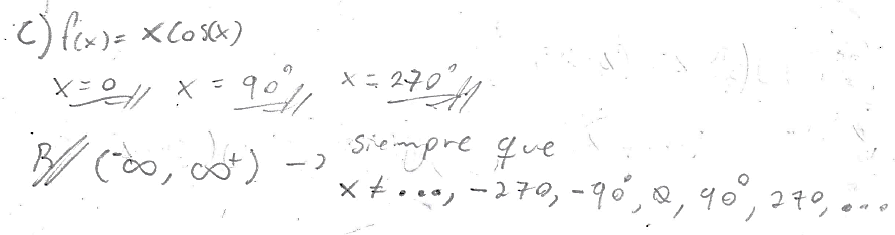 C) f(x) = x Cos(x)
x = 0// x = 90°// x = 270°//
R// (-∞, ∞+) → siempre que
x ≠ ..., -270, -90°, 0, 90°, 270, ...